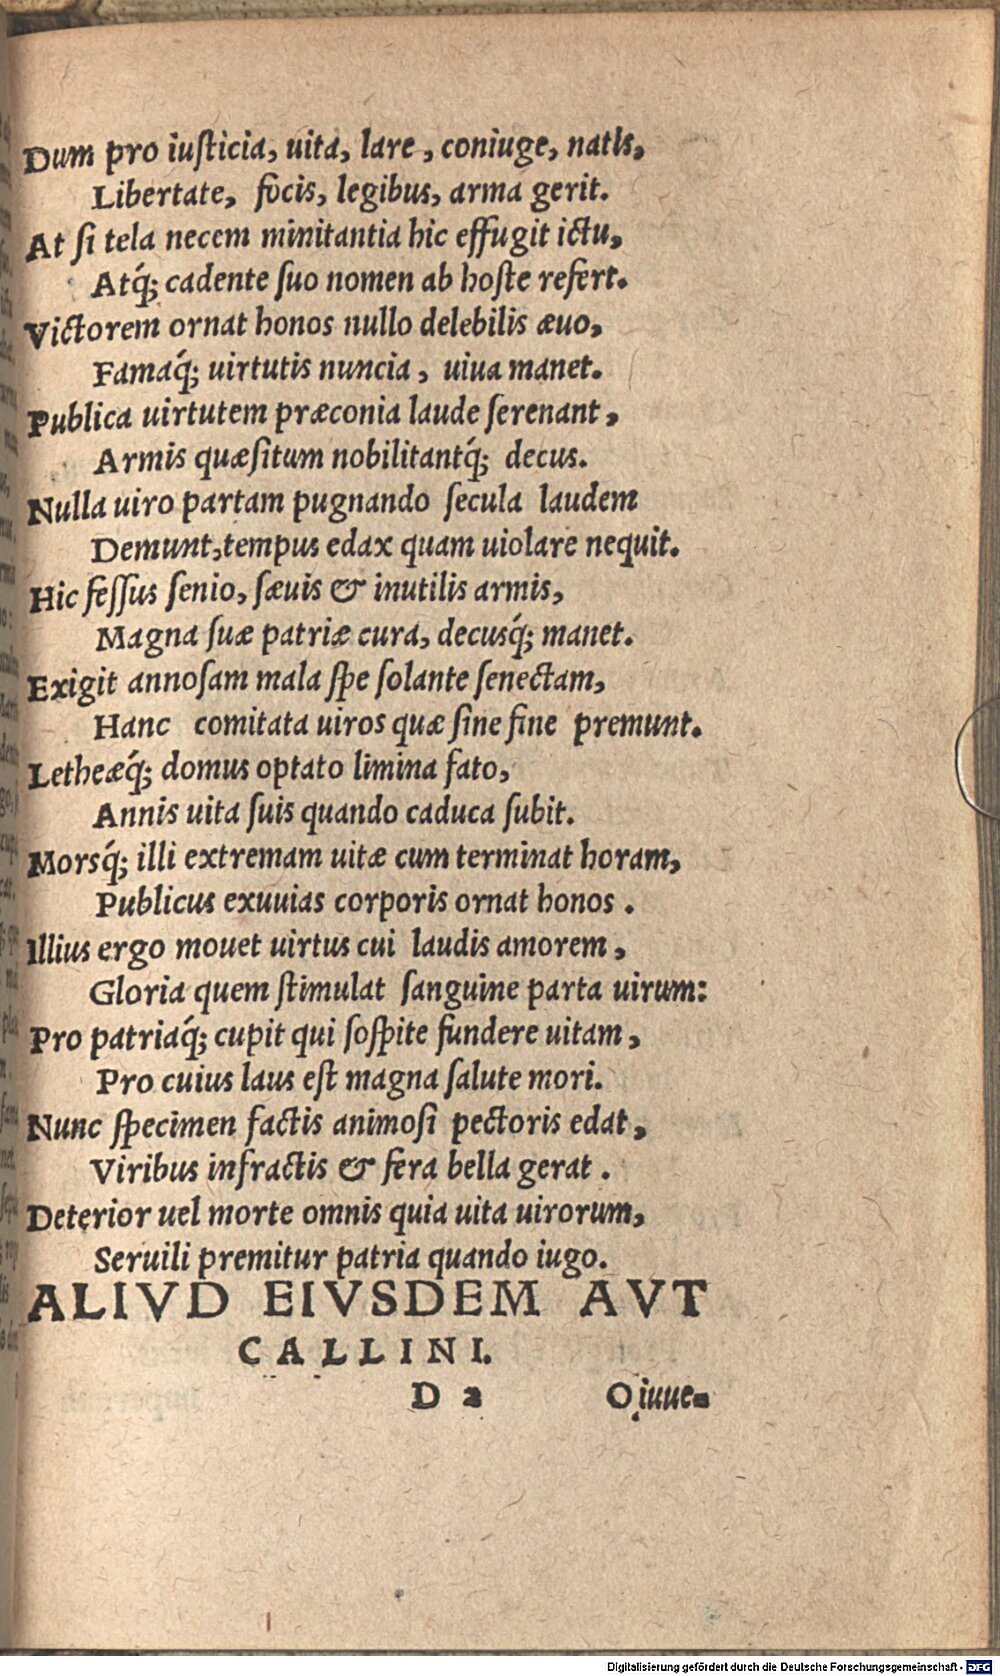 Dum pro iuſticia, uita, lare, coniuge, natis,
Libertate, focis, legibus, arma gerit.
At ſi tela necem minitantia hic effugit ictu,
Atq́; cadente ſuo nomen ab hoſte refert.
Victorem ornat honos nullo delebilis æuo,
Famaq́; uirtutis nuncia, uiua manet.
Publica uirtutem præconia laude ſerenant,
Armis quæſitum nobilitantq́; decus.
Nulla uiro partam pugnando ſecula laudem
Demunt, tempus edax quam uiolare nequit.
Hic feſſus ſenio, ſæuis & inutilis armis,
Magna ſuæ patriæ cura, decusq́; manet.
Exigit annoſam mala ſpe ſolante ſenectam,
Hanc comitata uiros quæ ſine fine premunt.
Letheæq́; domus optato limina fato,
Annis uita ſuis quando caduca ſubit.
Morsq́; illi extremam uitæ cum terminat horam,
Publicus exuuias corporis ornat honos.
Illius ergo mouet uirtus cui laudis amorem,
Gloria quem ſtimulat ſanguine parta uirum:
Pro patriaq́; cupit qui ſoſpite fundere uitam,
Pro cuius laus eſt magna ſalute mori.
Nunc ſpecimen factis animoſi pectoris edat,
Viribus infractis & fera bella gerat.
Deterior uel morte omnis quia uita uirorum,
Seruili premitur patria quando iugo.
ALIVD EIVSDEM AVT
CALLINI.
D 2 O iuue-
Digitalisierung gefördert durch die Deutsche Forschungsgemeinschaft - DFG